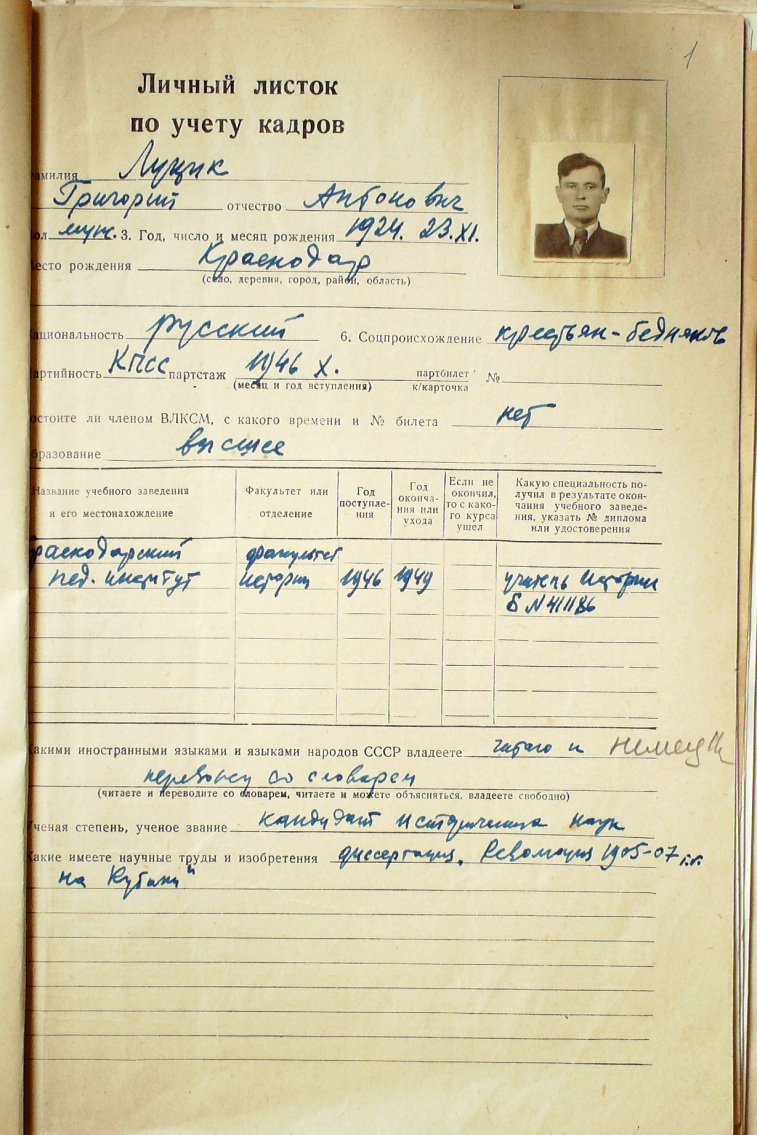 1
Личный листок
по учету кадров
амилия Луцик
Григорий отчество Антонович
ол муж. 3. Год, число и месяц рождения 1924. 23.XI.
есто рождения Краснодар
(село, деревня, город, район, область)
ациональность русский 6. Соцпроисхождение крестьян-бедняков
артийность КПСС партстаж 1946 X. партбилет №
(месяц и год вступления) к/карточка
остоите ли членом ВЛКСМ, с какого времени и № билета нет
бразование высшее
Название учебного заведения и его местонахождение
Факультет или отделение
Год поступле-
ния
Год оконча-
ния или
ухода
Если не
окончил,
то с како-
го курса
ушел
Какую специальность по-
лучил в результате окон-
чания учебного заведе-
ния, указать № диплома
или удостоверения
раснодарский факультет
пед. институт истории 1946 1949 учитель истории
Б №411186
акими иностранными языками и языками народов СССР владеете читаю и немецк
перевожу со словарем
(читаете и переводите со словарем, читаете и можете объясняться, владеете свободно)
Ученая степень, ученое звание кандидат исторических наук
Какие имеете научные труды и изобретения диссертация. Революция 1905-07 г.г.
на Кубани"